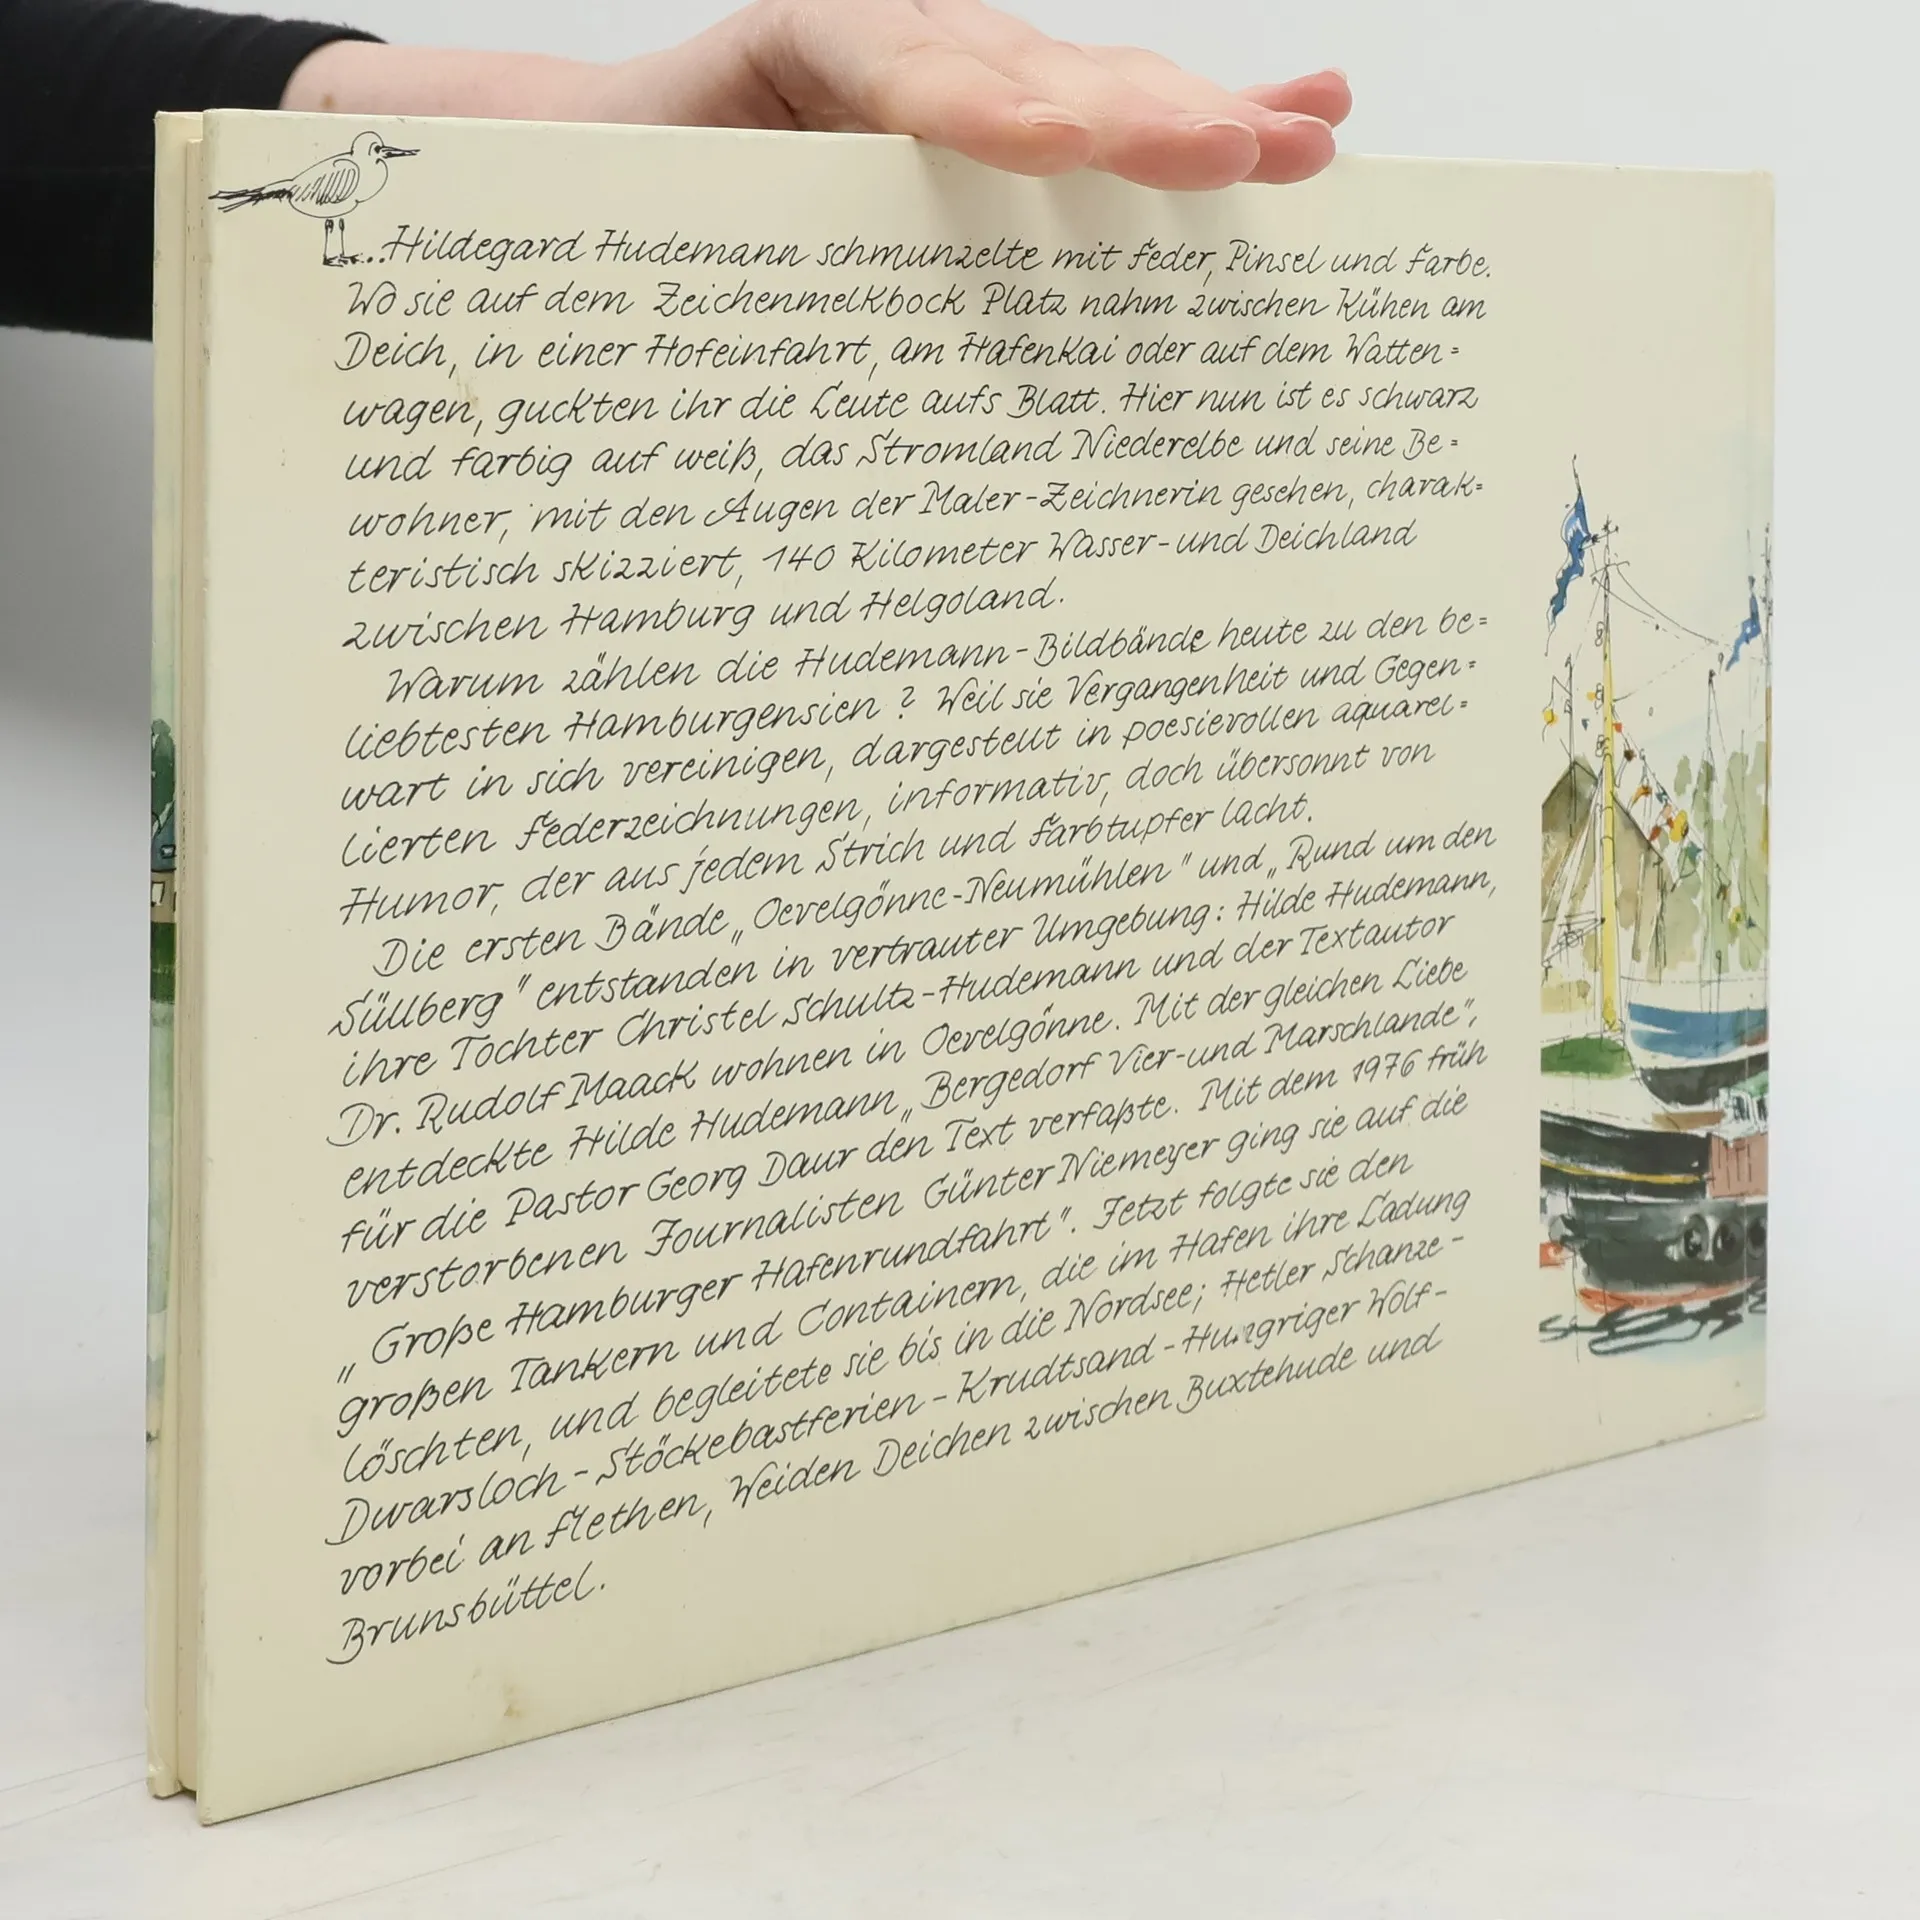 ...Hildegard Hudemann schmunzelte mit Feder, Pinsel und Farbe.
Wo sie auf dem Zeichenmelkbock Platz nahm zwischen Kühen am
Deich, in einer Hofeinfahrt, am Hafenkai oder auf dem Watten=
wagen, guckten ihr die Leute aufs Blatt. Hier nun ist es schwarz
und farbig auf weiß, das Stromland Niederelbe und seine Be=
wohner, mit den Augen der Maler-Zeichnerin gesehen, charak=
teristisch skizziert, 140 Kilometer Wasser-und Deichland
zwischen Hamburg und Helgoland.
Warum zählen die Hudemann-Bildbände heute zu den be=
liebtesten Hamburgensien? Weil sie Vergangenheit und Gegen=
wart in sich vereinigen, dargestellt in poesievollen aquarel=
lierten Federzeichnungen, informativ, doch übersonnt von
Humor, der aus jedem Strich und Farbtupfer lacht.
Die ersten Bände „Oevelgönne-Neumühlen" und „Rund um den
Süllberg" entstanden in vertrauter Umgebung: Hilde Hudemann,
ihre Tochter Christel Schultz-Hudemann und der Textautor
Dr. Rudolf Maack wohnen in Oevelgönne. Mit der gleichen Liebe
entdeckte Hilde Hudemann „Bergedorf Vier-und Marschlande",
für die Pastor Georg Daur den Text verfaßte. Mit dem 1976 früh
verstorbenen Journalisten Günter Niemeyer ging sie auf die
„Große Hamburger Hafenrundfahrt". Jetzt folgte sie den
großen Tankern und Containern, die im Hafen ihre Ladung
löschten, und begleitete sie bis in die Nordsee; Hetler Schanze-
Dwarsloch-Stöckebastferien-Krudtsand-Hungriger Wolf-
vorbei an Flethen, Weiden Deichen zwischen Buxtehude und
Brunsbüttel.